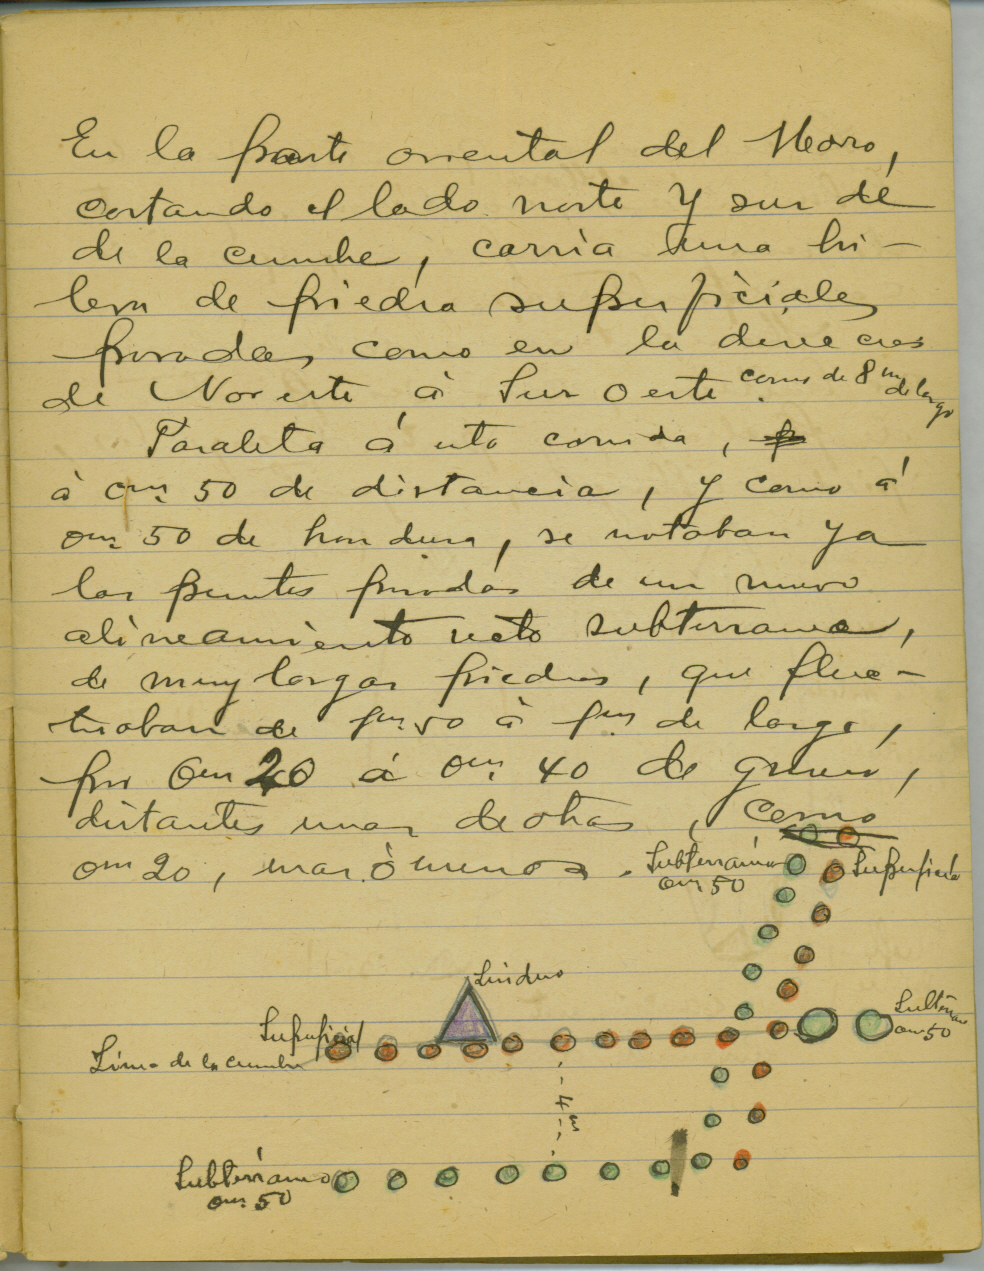 En la parte oriental del Morro,
cortando el lado norte y sur de
de la cumbre, corria una hi-
lera de piedra superficiales
paradas, como en la direccion
de Noreste á Sur Oeste. como de 8 m de largo
Paralela á esta corrida,
á 0m 50 de distancia, y como á
0m 50 de hondura, se notaban ya
las puntas paradas de un nuevo
alineamiento recto subterraneo,
de muy largas piedras, que fluc-
tuaban de 50 á de largo,
por 0m 20 á 0m 40 de grueso,
distantes unas de otras, como
0m 20, mas ó menos.
Subterráneo
0m 50
Superficial
Lindero
Subterráneo
0m 50
Superficial
Linea de la cumbre
4 m
Subterráneo
0m 50